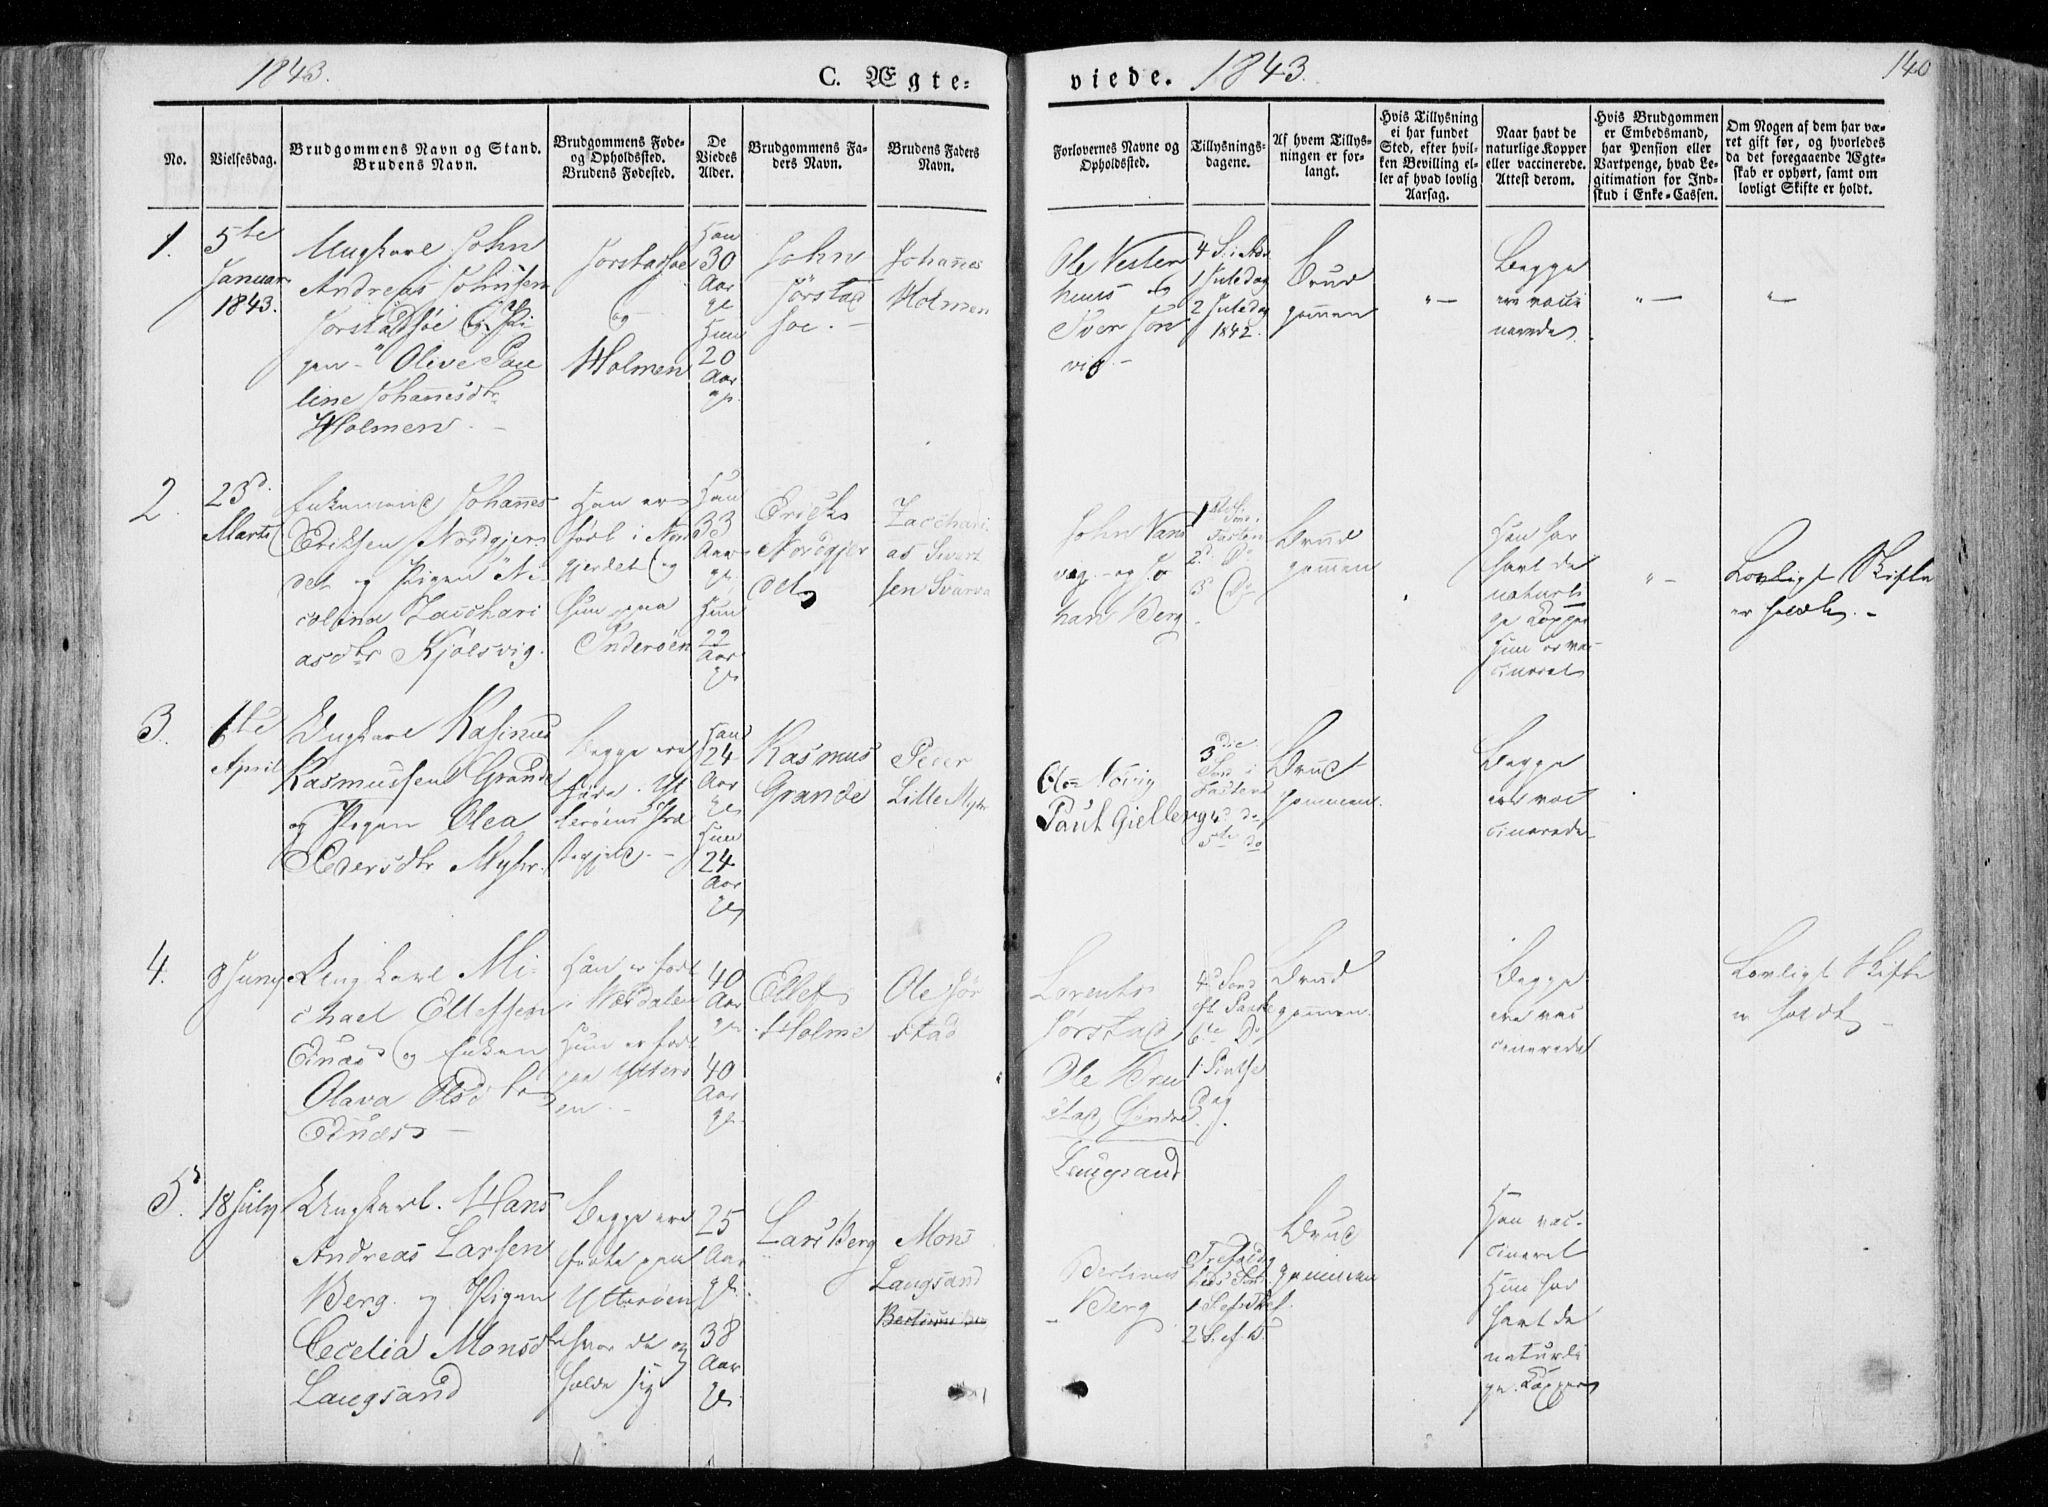 1843.
C. Ægte=
viede.
1843.
140
No.
Vielsesdag.
Brudgommens Navn og Stand.
Brudens Navn.
Brudgommens Føde-
og Opholdssted.
Brudens Fødested.
De
Viedes
Alder.
Brudgommens Fa-
ders Navn.
Brudens Faders
Navn.
Forlovernes Navne og
Opholdssted.
Tillysnings-
dagene.
Af hvem Tillys-
ningen er for-
langt.
Hvis Tillysning
ei har fundet
Sted, efter hvil-
ken Bevilling el-
ler af hvad lovlig
Aarsag.
Naar havt de
naturlige Kopper
eller vaccinerede.
Attest derom.
Hvis Brudgommen
er Embedsmand,
har Pension eller
Vartpenge, hvad Le-
gitimation for Ind-
skud i Enke-Cassen.
Om Nogen af dem har væ-
ret gift før, og hvorledes
da det foregaaende Ægte-
skab er ophørt, samt om
lovligt Skifte er holdt.
1.
5te
Januar
1843.
Ungkarl John
Andreas Johnsen
Jørstadsøe og Pi
gen Olive Pau
line Johannesdtr
Holmen
Jørstadsøe
og
Holmen
Han
30
Aar
gl
Hun
20
Aar
gl.
John
Jørstad
søe.
Johannes
Holmen
Ole Vester
huus og
Iver
vig
4 S. i Adv
1 Juledag
2 Juledag
1842.
Brud
gommen
"
Begge
ere vacci
nerede.
"
"
2
23d
Marts
Enkemand Johannes
Eriksen Nordgjer
det og Pigen Ni
colina Zacchari
asdtr Kjølsvig.
Han er
født i Nord
gjerdet og
hun paa
Inderøen
Han
33
Aar
gl.
Hun
22
Aar
gl
Erich
Nordgjer
det
Zacchari
as Sivert
sen Svarva
John Vand
vig og Jo
han Berg
1ste
Sønd i
Fasten
2d Do
3 Do
Brud
gommen
Han har
havt de
naturli
ge Kopper
Hun er vac
cineret
"
Lovligt Skifte
er holdt.
3.
1te
April
Ungkarl Rasinus
Rasmussen Grande
og Pigen Olea
Pedersdtr Myhr.
Begge ere
fødte i Yt
terøens Præ
stegjeld.
Han
24
Aar
gl
Hun
24
Aar
gl
Rasmus
Grande
Peder
Lille Myhr
Ole
Paul Gielberg
3die
Sønd i
Fasten
4d do
5te do
Brud
gommen.
Begge
ere vac
cinerede
4.
8 Juny
Ungkarl Mi
chael Ellefsen
Ednæs og Enken
Olava Olsdtr
Ednæs
Han er født
i Værdalen
Hun er født
paa Ytterø
en.
40
Aar
gl
40
Aar
gl.
Ellef
Holme
Ole Jør
stad
Lorents
Jørstad
Ole
stad Søndre
4d Sønd
ef. Paaske
6te Do
1 Pintse
Dag
Brud
gommen.
Begge
ere vac
cinerede
Lovligt Skifte
er holdt
5.
18 July
Ungkarl. Hans
Andreas Larsen
Berg og Pigen
Cecelia Monsdtr
Laugsand
Begge ere
fødte paa
Ytterøen
hvor de og
holde sig
25
Aar
gl.
38
Aar
gl
Lars Berg
Mons
Laugsand
Laugsand
Bertinus
Berg
Trefoldig
heds Sønd
1 S. ef. Tref.
2 S. ef. D.
Brud
gommen
Han vac-
cineret
Hun har
havt de
naturli
ge Kopper